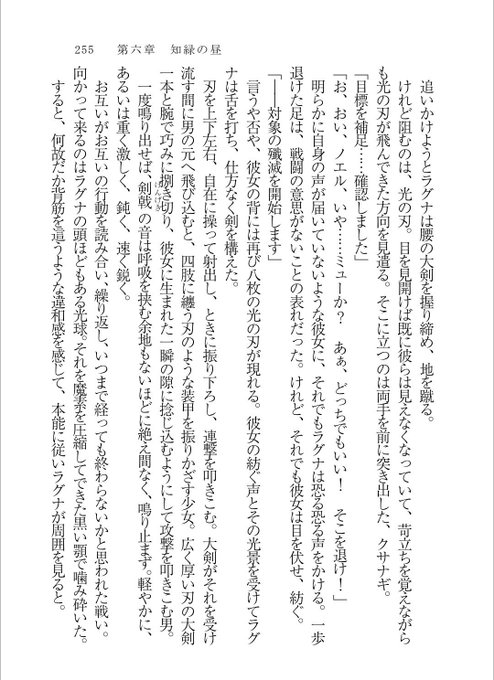 255　第六章　知緑の昼
追いかけようとラグナは腰の大剣を握り締め、地を蹴る。
けれど阻むのは、光の刃。目を見開けば既に彼らは見えなくなっていて、苛立ちを覚えながら
も光の刃が飛んできた方向を見遣る。そこに立つのは両手を前に突き出した、クサナギ。
「目標を補足……確認しました」
「お、おい、ノエル、いや……ミューか？　あぁ、どっちでもいい！　そこを退け！」
明らかに自身の声が届いていないような彼女に、それでもラグナは恐る恐る声をかける。一歩
退けた足は、戦闘の意思がないことの表れだった。けれど、それでも彼女は目を伏せ、紡ぐ。
「――対象の殲滅を開始します」
言うや否や、彼女の背には再び八枚の光の刃が現れる。彼女の紡ぐ声とその光景を受けてラグ
ナは舌を打ち、仕方なく剣を構えた。
刃を上下左右、自在に操って射出し、ときに振り下ろし、連撃を叩きこむ。大剣がそれを受け
流す間に男の元へ飛び込むと、四肢に纏う刃のような装甲を振りかざす少女。広く厚い刃の大剣
一本と腕で巧みに捌き切り、彼女に生まれた一瞬の隙に捻じ込むようにして攻撃を叩き込む男。
一度鳴り出せば、剣戟の音は呼吸を挟む余地もないほどに絶え間なく、鳴り止まず。軽やかに、
あるいは重く激しく、鈍く、速く鋭く。
お互いがお互いの行動を読み合い、繰り返し、いつまで経っても終わらないかと思われた戦い。
向かって来るのはラグナの頭ほどもある光球。それを魔素を圧縮してできた黒い顎で噛み砕いた。
すると、何故だか背筋を這うような違和感を感じて、本能に従いラグナが周囲を見ると。